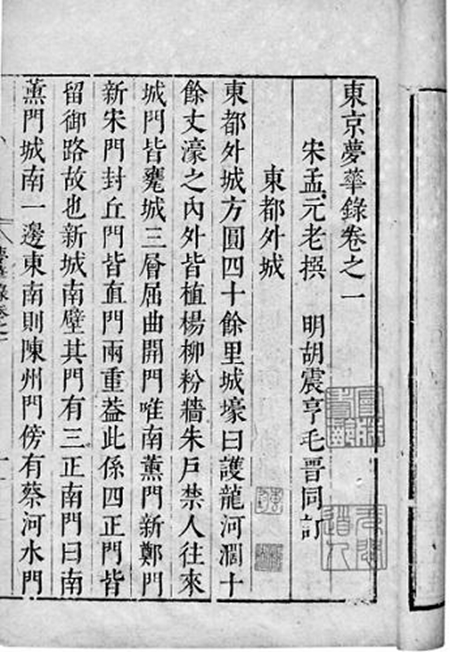 東京夢華錄卷之一
宋孟元老撰　明胡震亨毛晉同訂
東都外城
東都外城方圓四十餘里城壕曰護龍河濶十
餘丈濠之內外皆植楊柳粉牆朱戶禁人往來
城門皆甕城三層屈曲開門唯南薰門新鄭門
新宋門封丘門皆直門兩重葢此係四正門皆
留御路故也新城南壁其門有三正南門曰南
薰門城南一邊東南則陳州門傍有蔡河水門
夢華錄卷之一